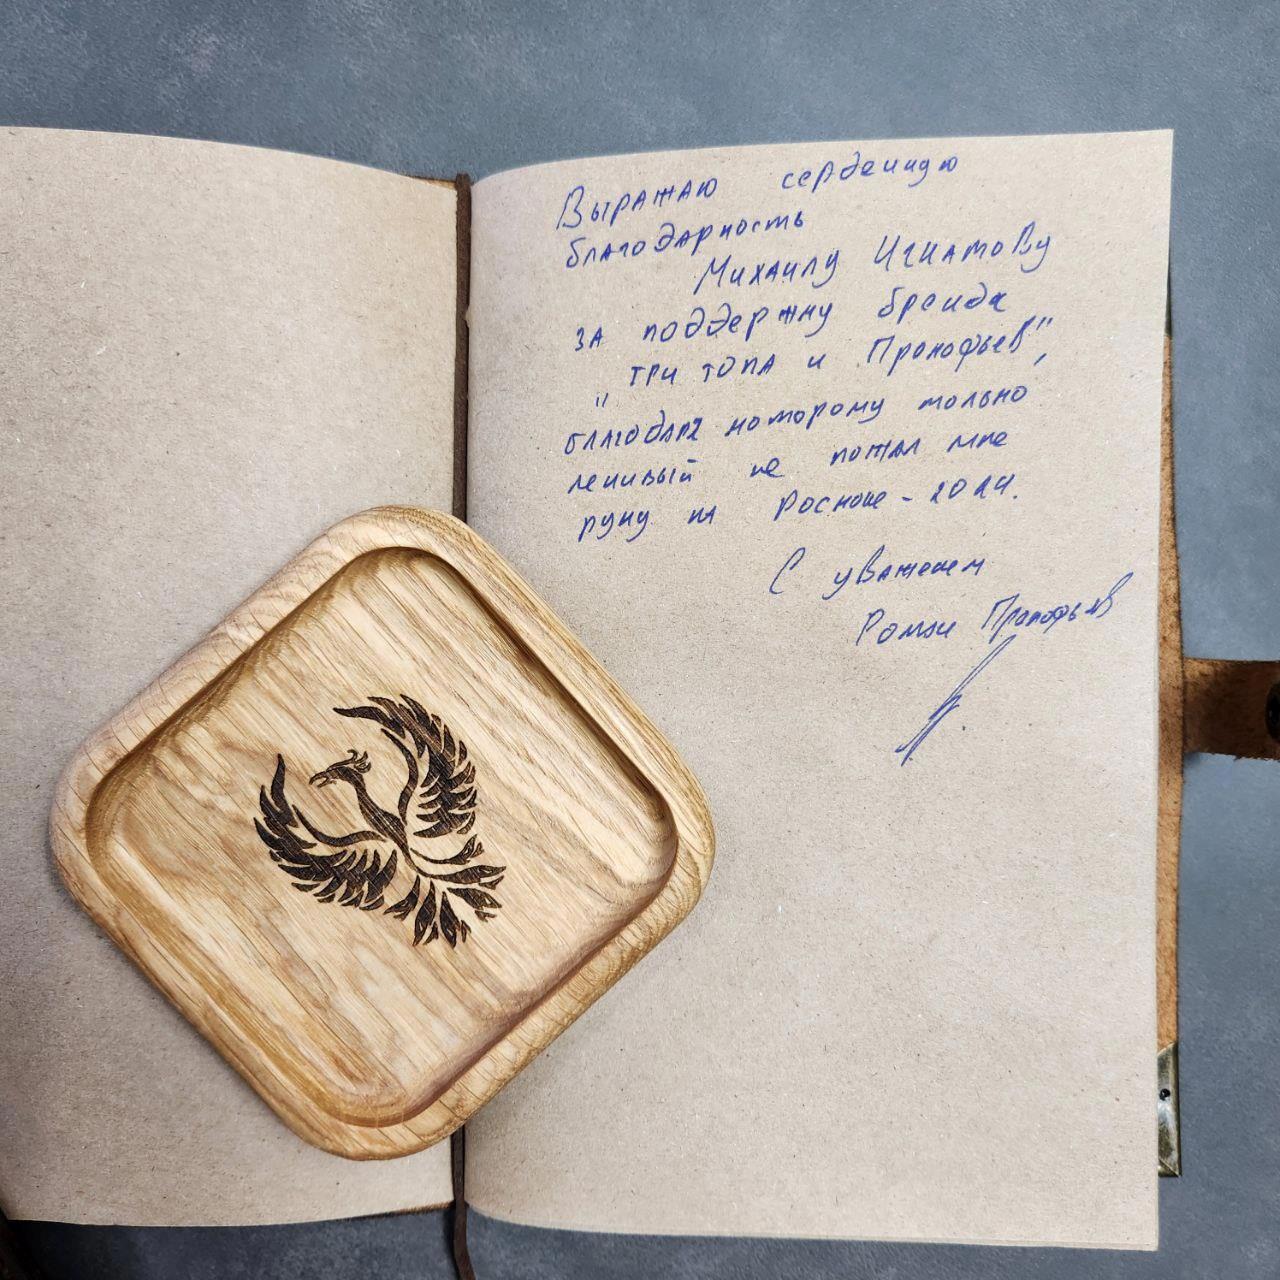 Выражаю сердечную
благодарность
Михаилу Игнатову
за поддержку бренда
"три топа и Прокофьев",
благодаря которому только
ленивый не пожал мне
руку на Роскоже-2024.
С уважением
Роман Прокофьев